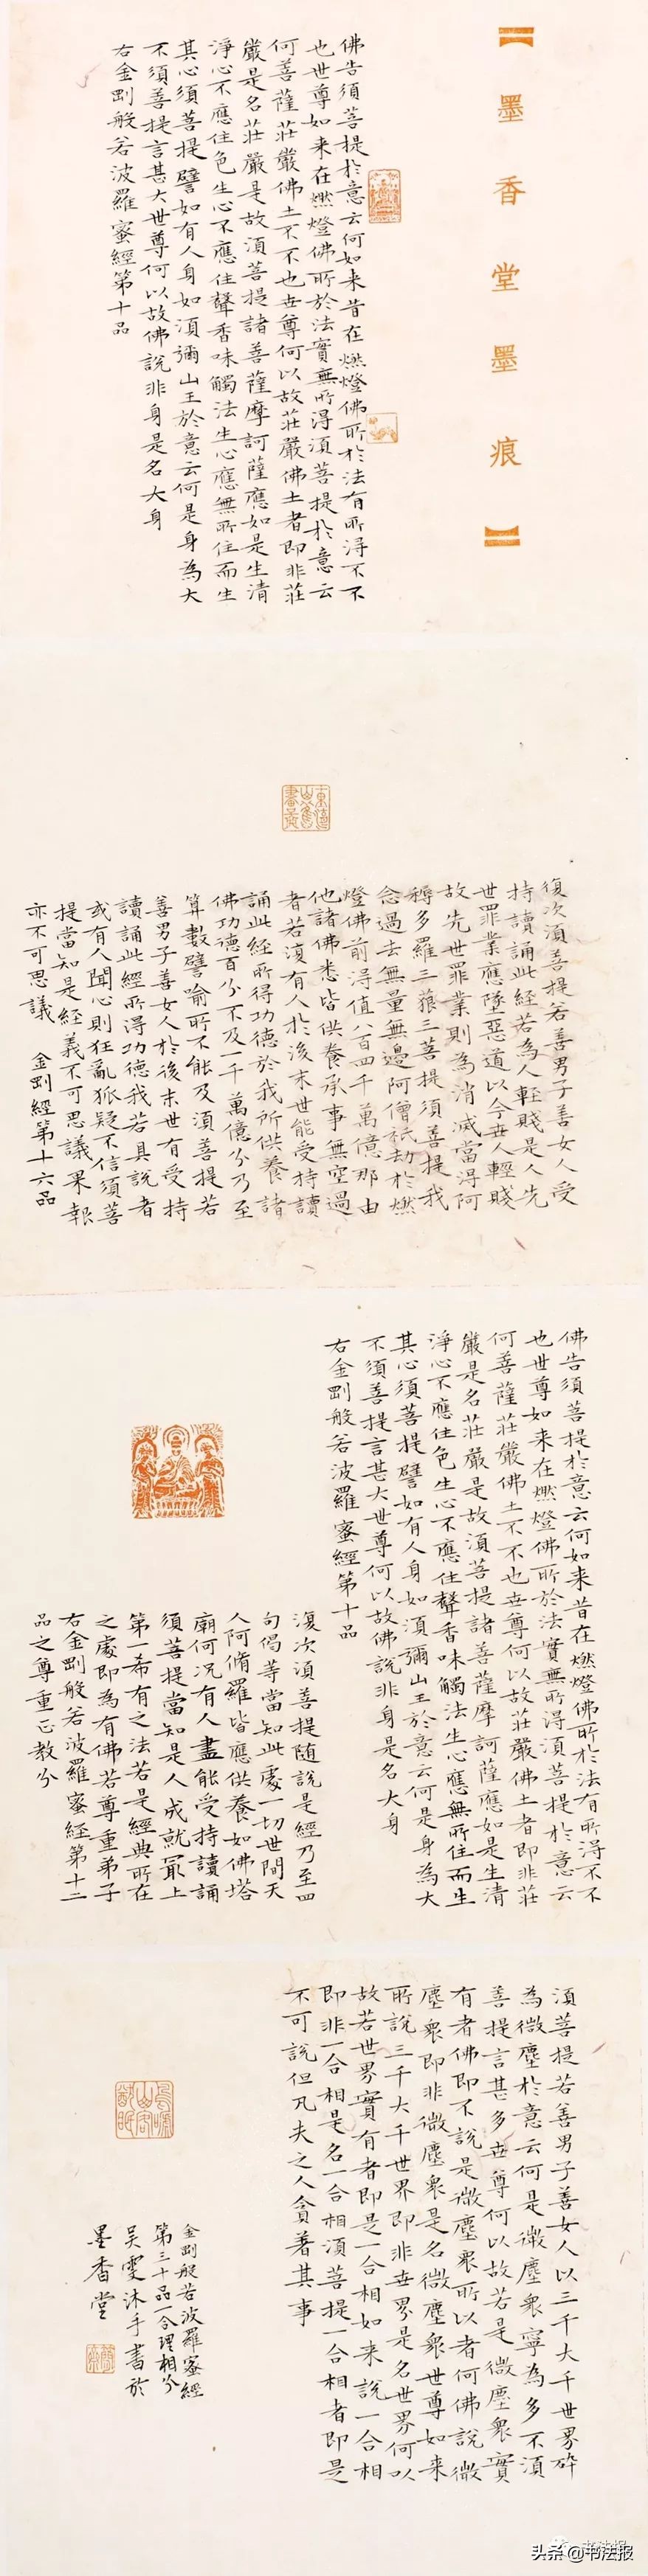 【墨香堂墨痕】
佛告須菩提於意云何如来昔在燃燈佛所於法有所得不不
也世尊如来在燃燈佛所於法實無所得須菩提於意云
何菩薩莊嚴佛土不不也世尊何以故莊嚴佛土者即非莊
嚴是名莊嚴是故須菩提諸菩薩摩訶薩應如是生清
淨心不應住色生心不應住聲香味觸法生心應無所住而生
其心須菩提譬如有人身如須彌山王於意云何是身為大
不須善提言甚大世尊何以故佛說非身是名大身
右金剛般若波羅蜜經第十品
復次須菩提若善男子善女人受
持讀誦此經若為人輕賤是人先
世罪業應墮惡道以今世人輕賤
故先世罪業則為消滅當得阿
耨多羅三藐三菩提須菩提我
念過去無量無邊阿僧祇劫於燃
燈佛前得值八百四千萬億那由
他諸佛悉皆供養承事無空過
者若復有人於後末世能受持讀
誦此經所得功德於我所供養諸
佛功德百分不及一千萬億分乃至
算數譬喻所不能及須菩提若
善男子善女人於後末世有受持
讀誦此經所得功德我若具說者
或有人聞心則狂亂狐疑不信須菩
提當知是經義不可思議果報
亦不可思議 金剛經第十六品
佛告須菩提於意云何如来昔在燃燈佛所於法有所得不不
也世尊如来在燃燈佛所於法實無所得須菩提於意云
何善薩莊嚴佛土不不也世尊何以故莊嚴佛土者即非莊
嚴是名莊嚴是故須菩提諸菩薩摩訶薩應如是生清
淨心不應住色生心不應住聲香味觸法生心應無所住而生
其心須菩提譬如有人身如須彌山王於意云何是身為大
不須善提言甚大世尊何以故佛說非身是名大身
右金剛般若波羅蜜經第十品
復次須菩提随說是經乃至四
句偈等當知此處一切世間天
人阿脩羅皆應供養如佛塔
廟何况有人盡能受持讀誦
須菩提當知是人成就冣上
第一希有之法若是經典所在
之處即為有佛若尊重弟子
右金剛般若波羅蜜經第十二
品之尊重正教分
須菩提若善男子善女人以三千大千世界碎
為微塵於意云何是微塵衆寧為多不須
善提言甚多世尊何以故若是微塵衆實
有者佛即不說是微塵衆所以者何佛說微
塵衆即非微塵衆是名微塵衆世尊如来
所說三千大千世界即非世界是名世界何以
故若世界實有者即是一合相如来說一合相
即非一合相是名一合相須菩提一合相者即是
不可說但凡夫之人貪著其事
金剛般若波羅蜜經
第三十品一合理相分
吴雯沐手書於
墨香堂
头条 @书法报